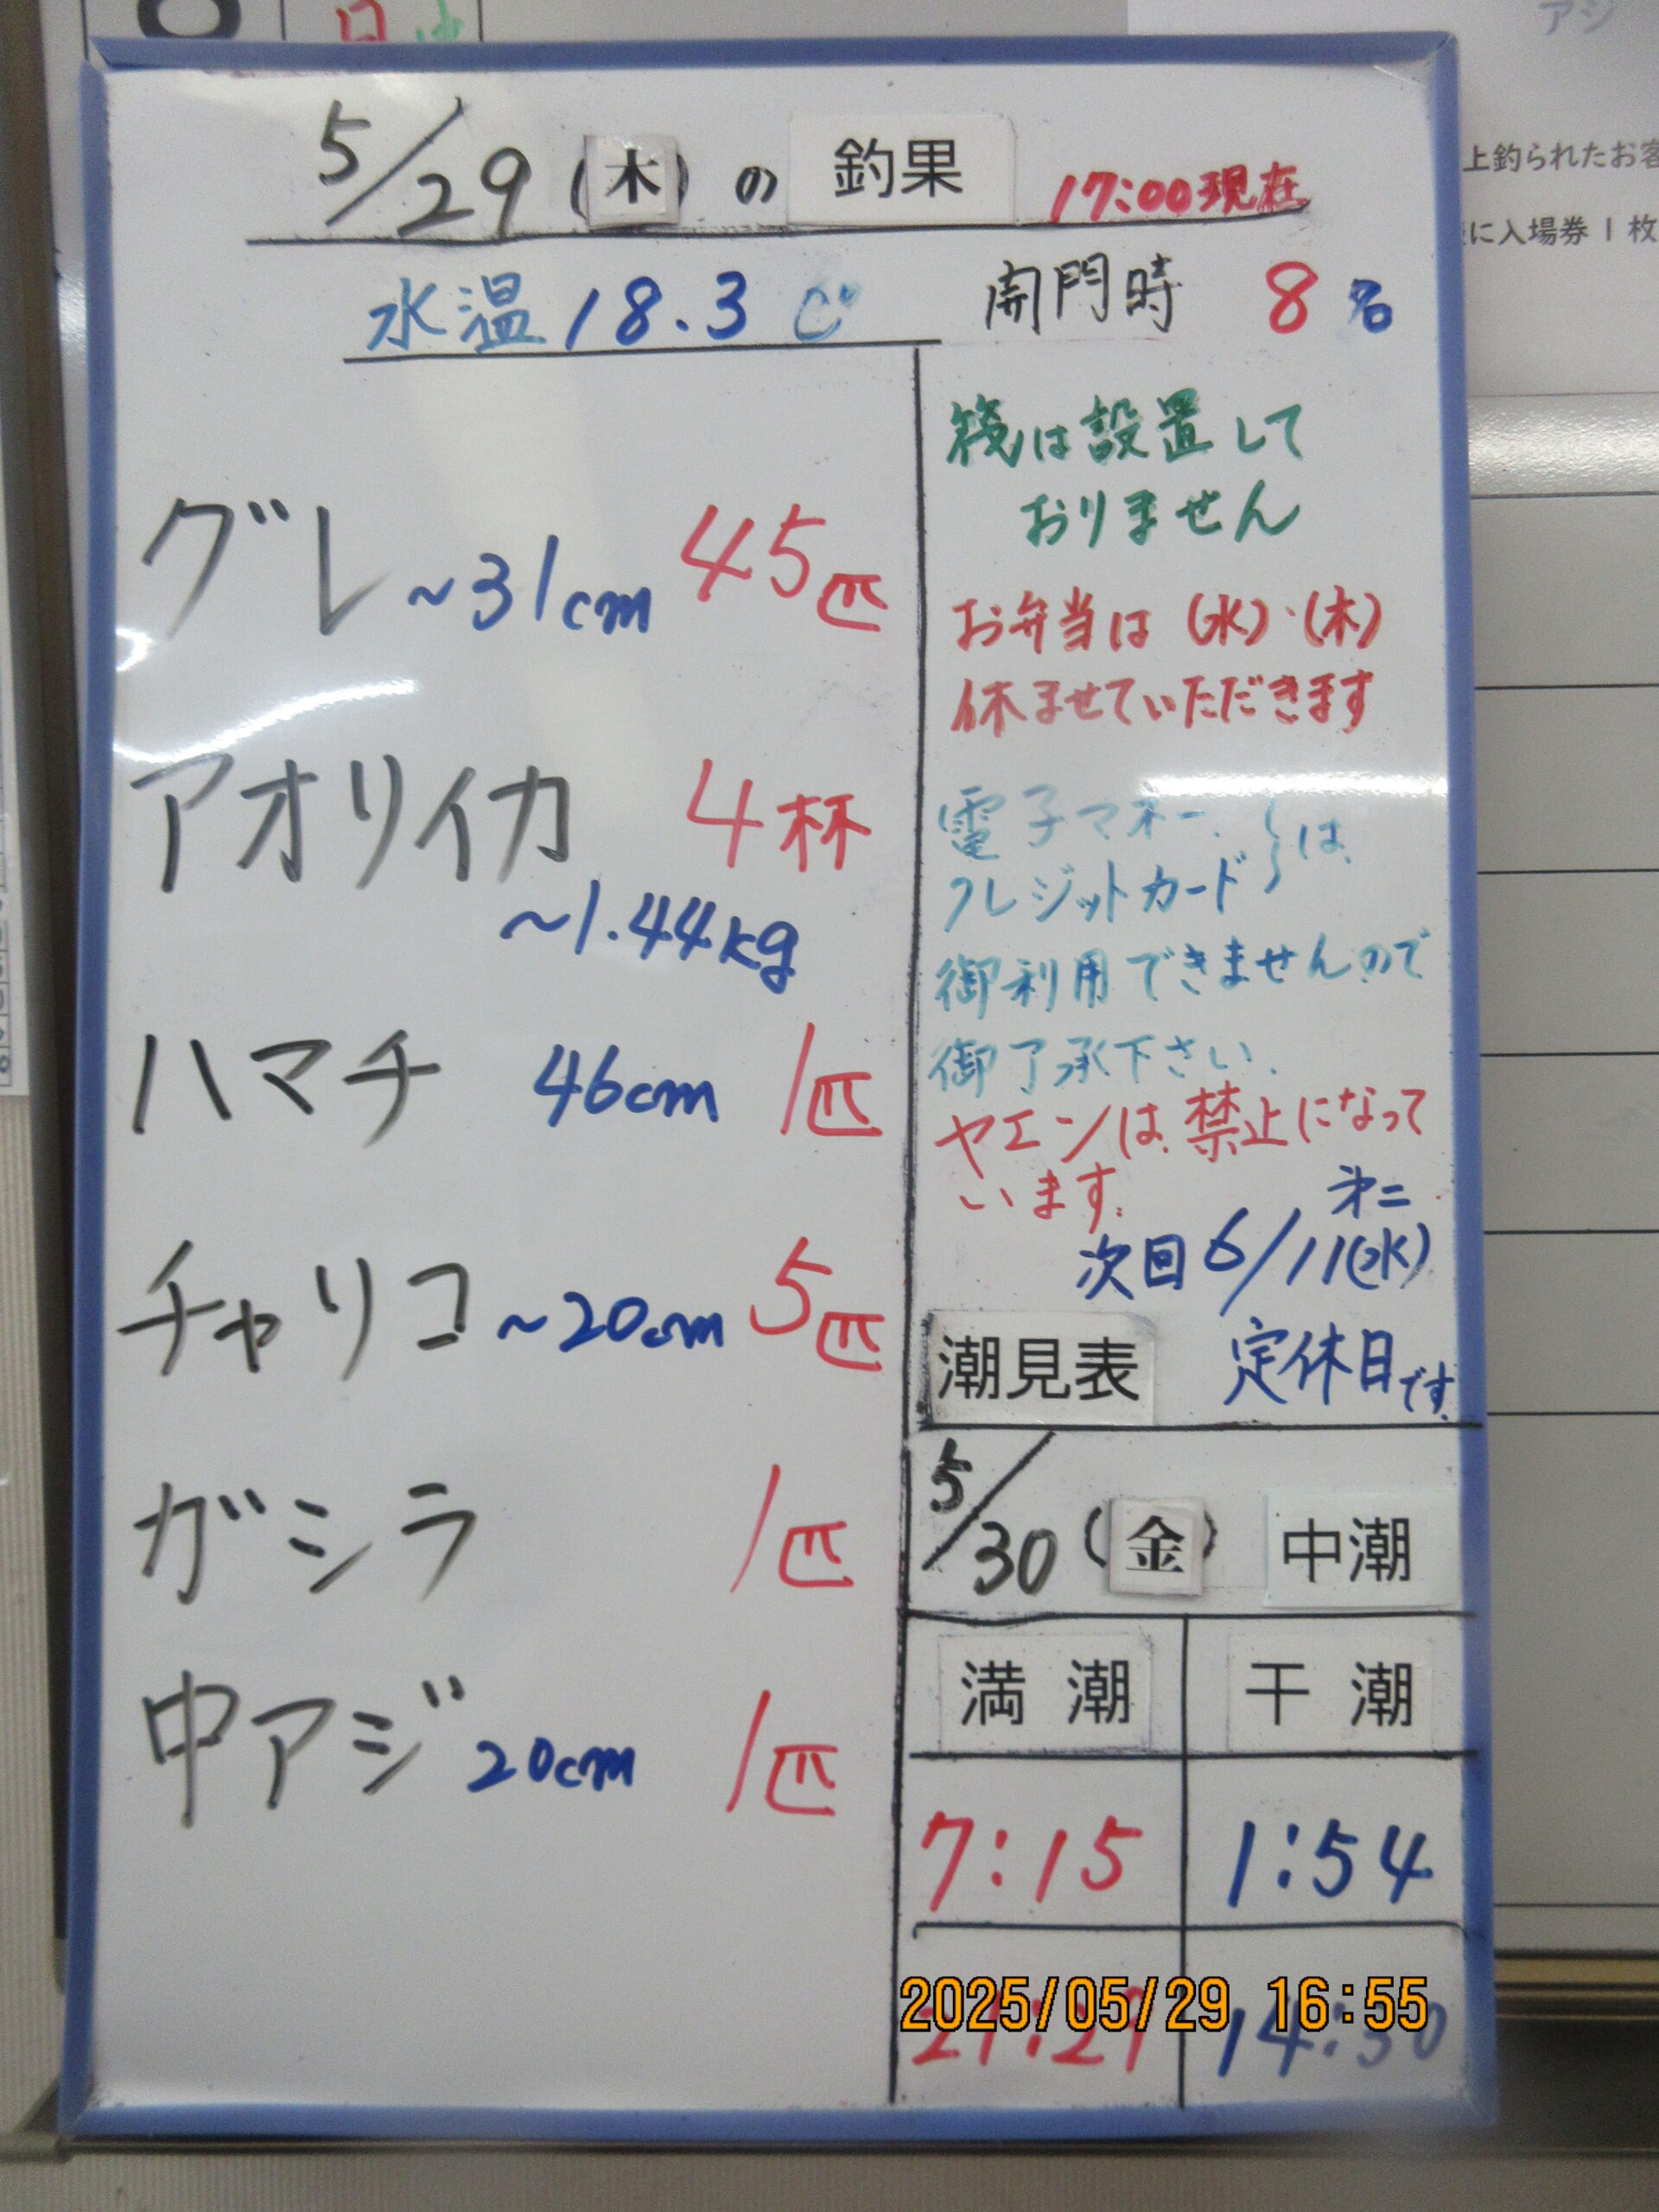 5/29(木)の 釣果 17:00現在
水温 18.3 C° 開門時 8名
グレ ~31cm 45匹
アオリイカ 4杯
~1.44kg
ハマチ 46cm 1匹
チャリコ ~20cm 5匹
ガシラ 1匹
中アジ 20cm 1匹
筏は設置して
おりません
お弁当は(水)・(木)
休ませていただきます
電子マネー、
クレジットカード は
御利用できませんので
御了承下さい.
ヤエンは禁止になって
います.
次回 6/11(水)
才二
定休日です.
潮見表
5/30(金) 中潮
満 潮 干 潮
7:15 1:54
14:30
2025/05/29 16:55
アジ
上釣られたお客
に入場券1枚